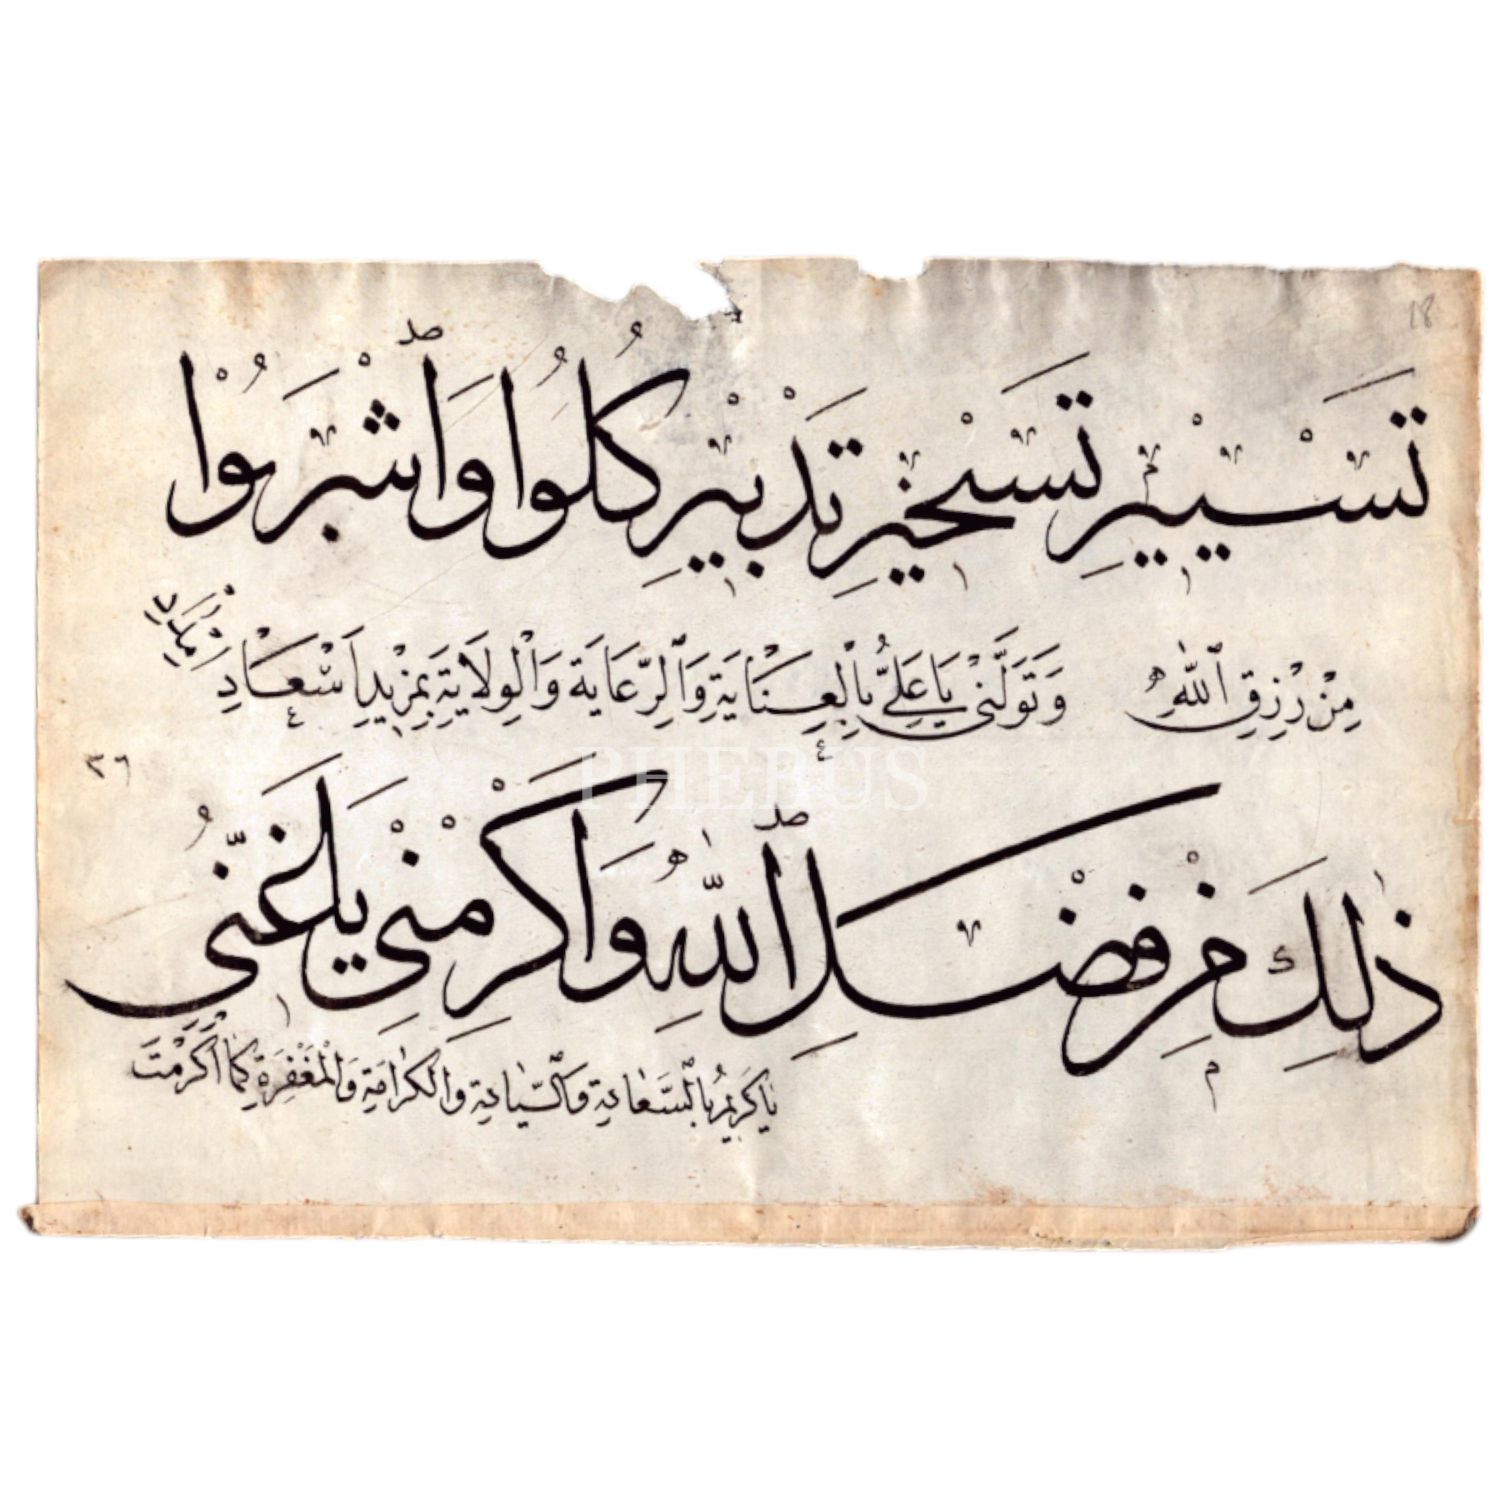 18
تَسْيِيرِ تَسْخِيرِ تَدْبِيرِ كُلُوا وَٱشْرَبُوا
مِنْ رِزْقِ ٱللّٰهِ وَتَوَلَّنِى يَا عَلِيُّ بِالْعِنَايَةِ وَٱلرِّعَايَةِ وَٱلْوِلَايَةِ بِمَزِيدِ اَسْعَادِ
٢٦
PHEBUS
ذٰلِكَ مِنْ فَضْلِ ٱللّٰهِ وَاَكْرِمْنِى يَا غَنِىُّ
يَا كَرِيمُ بِالسَّعَادَةِ وَٱلسِّيَادَةِ وَٱلْكَرَامَةِ وَٱلْمَغْفِرَةِ كَمَا اَكْرَمْتَ